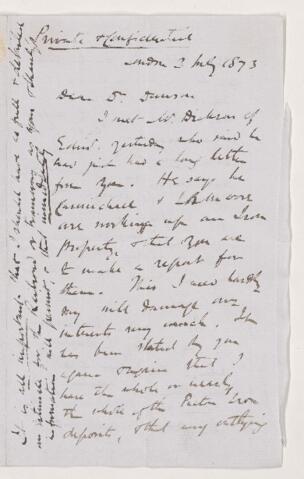 Private & Confidential
London 2 July 1873
Dear Dr. Dawson
I met Mr. Dickson of
Edinr. yesterday who said he
had just had a long letter
from you. He says he
Carmichael &
are working up an Iron
Property, & that you are
to make a report for
them. This I need hardly
say will damage our
interests very much. It
has been stated by you
again & again that I
have the whole or nearly
the whole of the Pictou Iron
deposits, & that any outlying
It is all important that I should have as full & detailed
an as you
information will permit, & that immediately